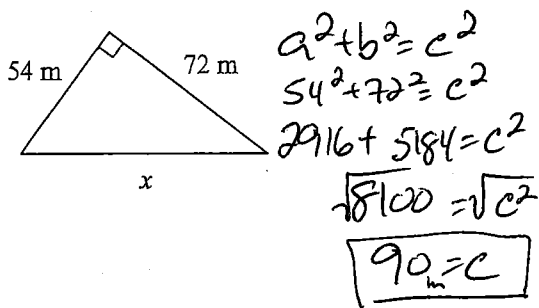 54 m
72 m
x
a²+b²=c²
54²+72²=c²
2916+5184=c²
√8100=√c²
90m=c